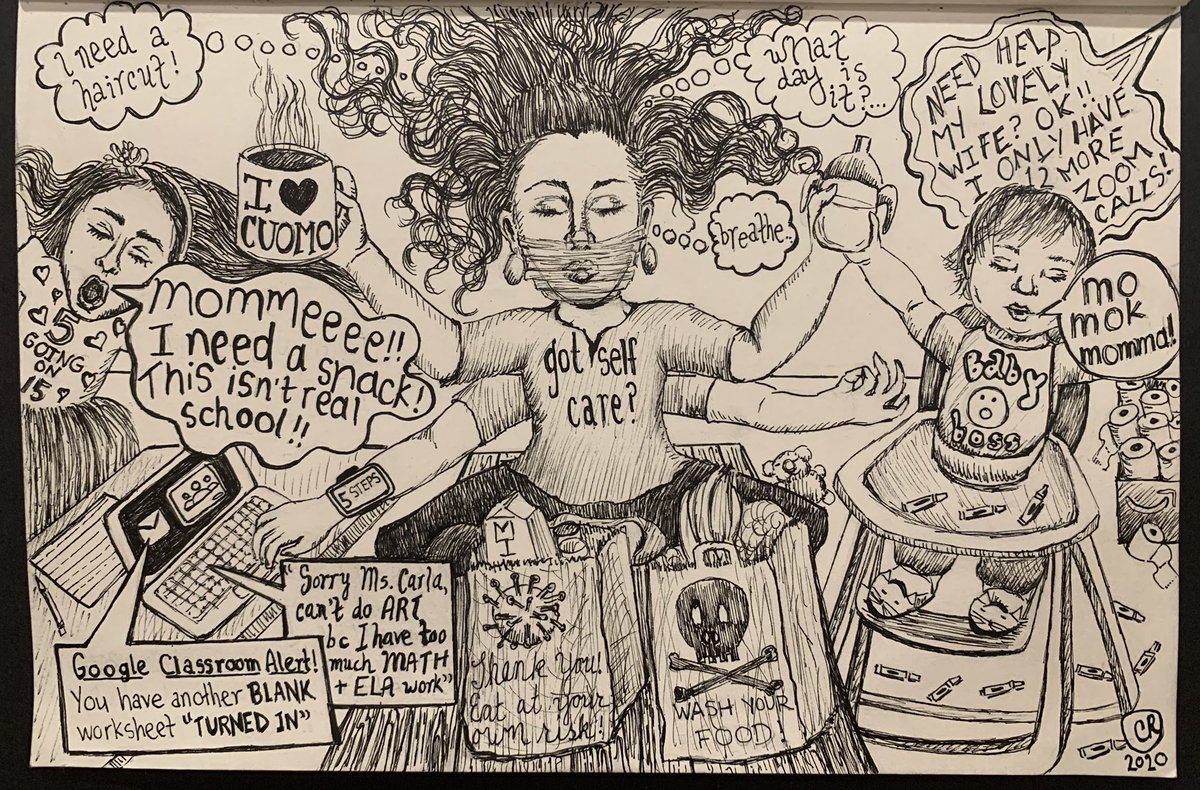 i need a
haircut!
what
day is
it?...
NEED HELP
MY LOVELY
WIFE? OK!!
I ONLY HAVE
12 MORE
ZOOM
CALLS!
I ♥
CUOMO
breathe.
mo
mok
momma!
5
GOING
ON
15
Mommeeee!!
I need a snack!
This isn't real
school!!
got self
care?
Baby
boss
5 STEPS
MI
"Sorry Ms. Carla,
can't do ART
bc I have too
much MATH
+ ELA work"
Google Classroom Alert!
You have another BLANK
worksheet "TURNED IN"
Thank You!
Eat at your
own risk!
WASH YOUR
FOOD!
CR
2020